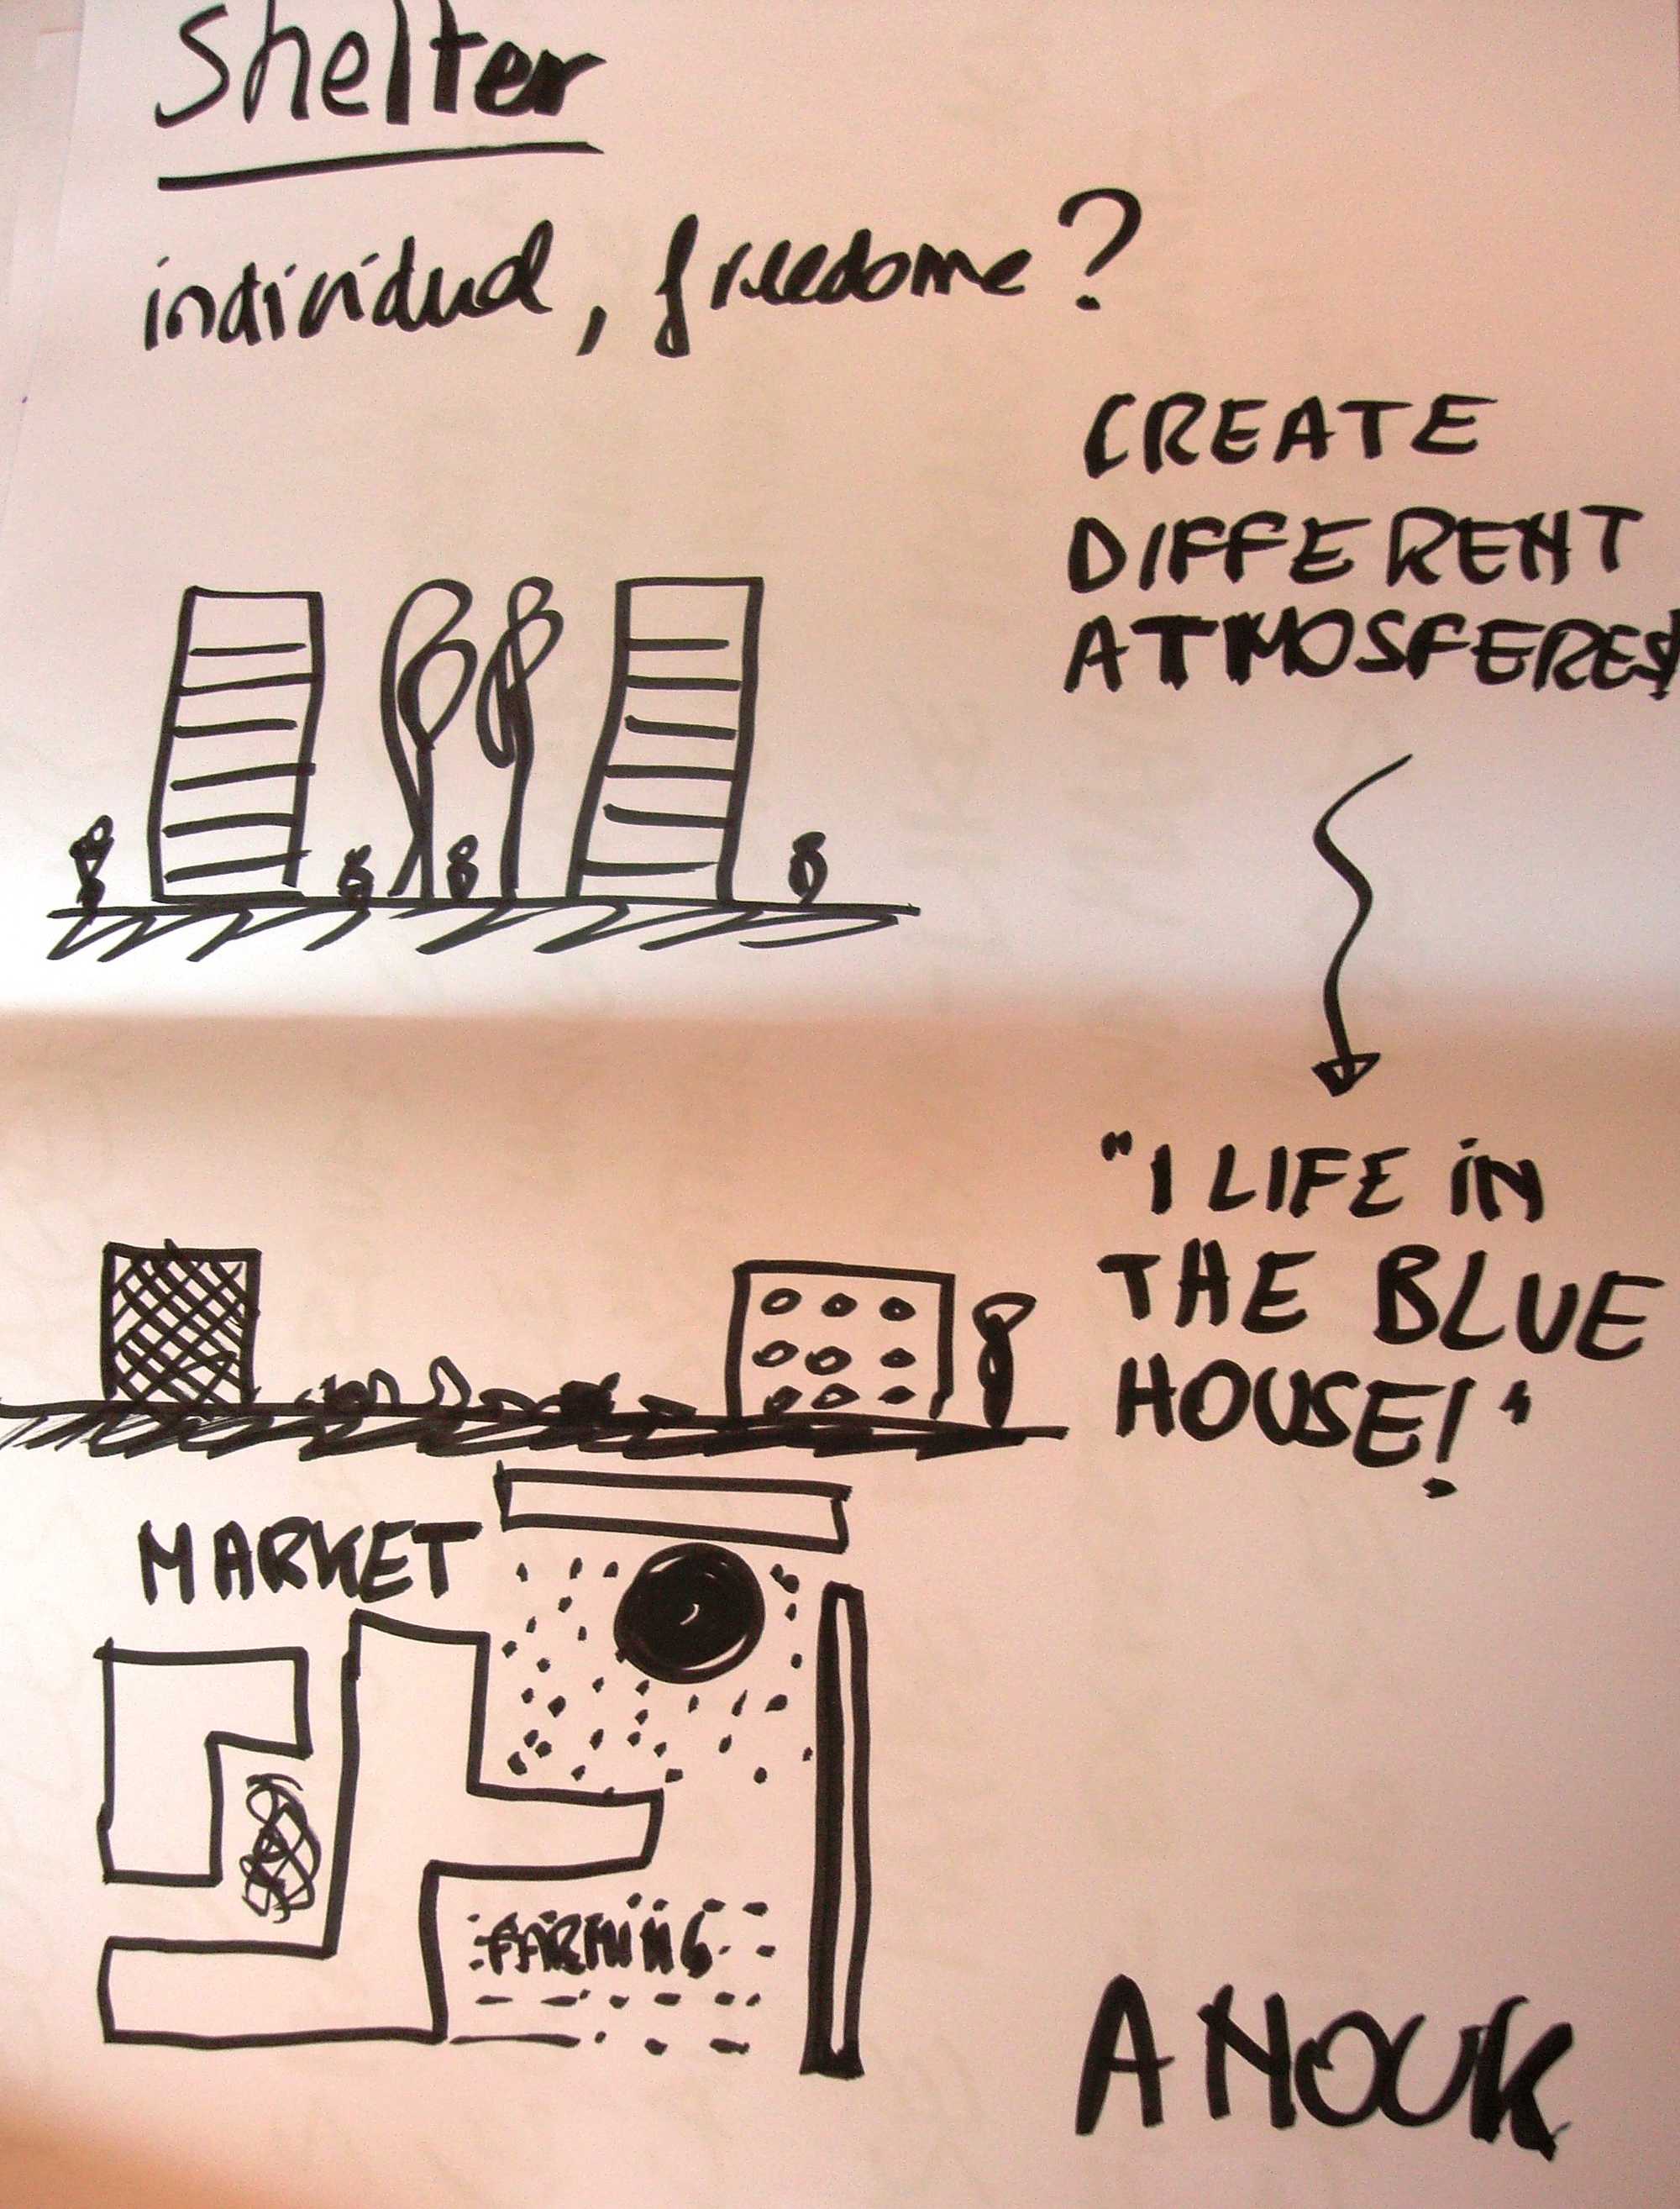 Shelter
individual, freedome?
CREATE
DIFFERENT
ATMOSFERES
"I LIFE iN
THE BLUE
HOUSE!"
MARKET
FARMING
ANOUK